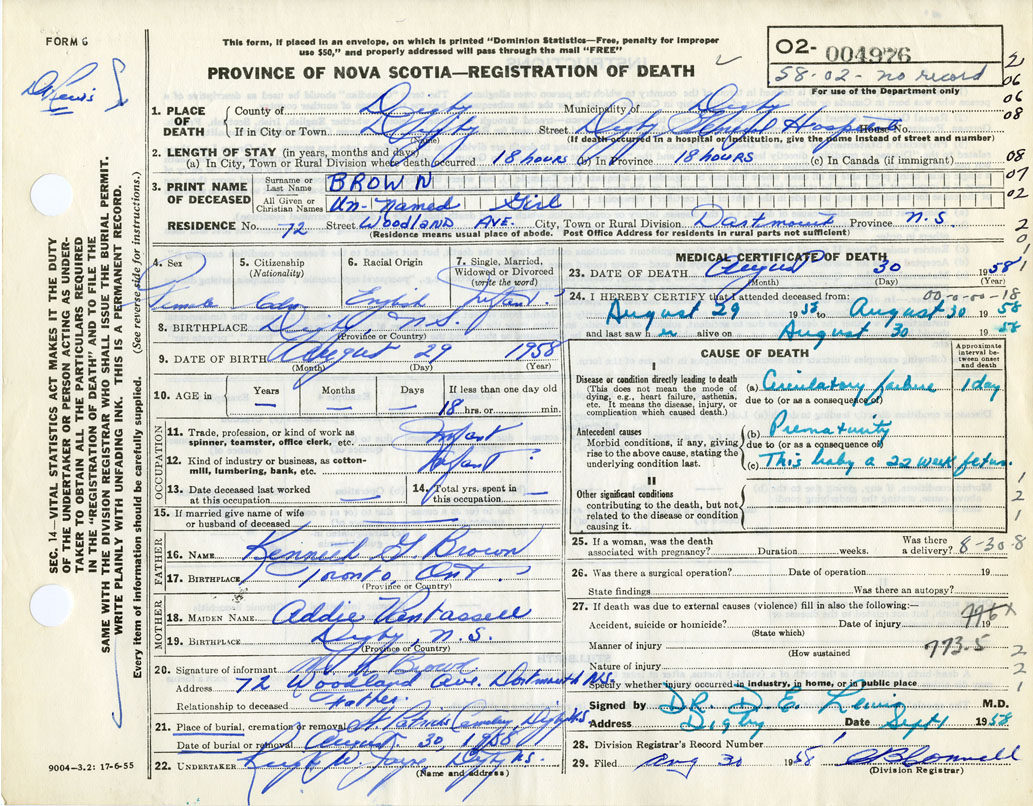 FORM 6
This form, if placed in an envelope, on which is printed "Dominion Statistics—Free, penalty for improper
use $50," and properly addressed will pass through the mail "FREE"
PROVINCE OF NOVA SCOTIA—REGISTRATION OF DEATH
02- 004976
58-02-no record
For use of the Department only
Dr Lewis
SEC. 14—VITAL STATISTICS ACT MAKES IT THE DUTY
OF THE UNDERTAKER OR PERSON ACTING AS UNDER-
TAKER TO OBTAIN ALL THE PARTICULARS REQUIRED
IN THE "REGISTRATION OF DEATH" AND TO FILE THE
SAME WITH THE DIVISION REGISTRAR WHO SHALL ISSUE THE BURIAL PERMIT.
WRITE PLAINLY WITH UNFADING INK. THIS IS A PERMANENT RECORD.
Every item of information should be carefully supplied. (See reverse side for instructions.)
1. PLACE OF DEATH
County of Digby Municipality of Digby
If in City or Town Digby Street Digby General Hospital House No.
(Name) (If death occurred in a hospital or institution, give the name instead of street and number)
2. LENGTH OF STAY (in years, months and days)
(a) In City, Town or Rural Division where death occurred 18 hours (b) In Province 18 hours (c) In Canada (if immigrant)
3. PRINT NAME OF DECEASED
Surname or Last Name BROWN
All Given or Christian Names Un-Named Girl
RESIDENCE No. 72 Street Woodland Ave. City, Town or Rural Division Dartmouth Province N.S.
(Residence means usual place of abode. Post Office Address for residents in rural parts not sufficient)
4. Sex Female
5. Citizenship (Nationality) Cdn.
6. Racial Origin English
7. Single, Married, Widowed or Divorced (write the word) Infant.
8. BIRTHPLACE Digby, N.S.
(Province or Country)
9. DATE OF BIRTH August 29 1958
(Month) (Day) (Year)
10. AGE in Years — Months — Days — If less than one day old 18 hrs. or min.
OCCUPATION
11. Trade, profession, or kind of work as spinner, teamster, office clerk, etc. Infant
12. Kind of industry or business, as cotton-mill, lumbering, bank, etc. Infant
13. Date deceased last worked at this occupation —
14. Total yrs. spent in this occupation —
15. If married give name of wife or husband of deceased
FATHER
16. NAME Kenneth G. Brown
17. BIRTHPLACE Toronto, Ont.
(Province or Country)
MOTHER
18. MAIDEN NAME Addie VanTassell
19. BIRTHPLACE Digby, N.S.
(Province or Country)
20. Signature of informant Brown
Address 72 Woodland Ave. Dartmouth N.S.
Relationship to deceased Father.
21. Place of burial, cremation or removal Digby NS
Date of burial or removal August. 30, 1958
22. UNDERTAKER Digby NS.
(Name and address)
9004-3.2: 17-6-55
MEDICAL CERTIFICATE OF DEATH
23. DATE OF DEATH August 30 1958
(Month) (Day) (Year)
24. I HEREBY CERTIFY that I attended deceased from: 00-0-00-18
August 29 1958 to August 30 1958
and last saw her alive on August 30 1958
CAUSE OF DEATH
Approximate interval between onset and death
I
Disease or condition directly leading to death
(This does not mean the mode of dying, e.g., heart failure, asthenia, etc. It means the disease, injury, or complication which caused death.)
(a) Circulatory failure 1 day
due to (or as a consequence of)
Antecedent causes
Morbid conditions, if any, giving rise to the above cause, stating the underlying condition last.
(b) Prematurity
due to (or as a consequence of)
(c) This baby a 22 week fetus.
II
Other significant conditions
contributing to the death, but not related to the disease or condition causing it.
25. If a woman, was the death associated with pregnancy? Duration weeks. Was there a delivery? 8-30-8
26. Was there a surgical operation? Date of operation 19
State findings Was there an autopsy?
27. If death was due to external causes (violence) fill in also the following:—
Accident, suicide or homicide? Date of injury 19
(State which)
776 x
Manner of injury 773.5
(How sustained
Nature of injury
Specify whether injury occurred in industry, in home, or in public place
Signed by DR. D E Lewis M.D.
Address Digby Date Sept 1 1958
28. Division Registrar's Record Number
29. Filed Aug 30 1958
(Division Registrar)
2
06
06
08
08
07
02
2
0
1
1
2
1
2
2
1